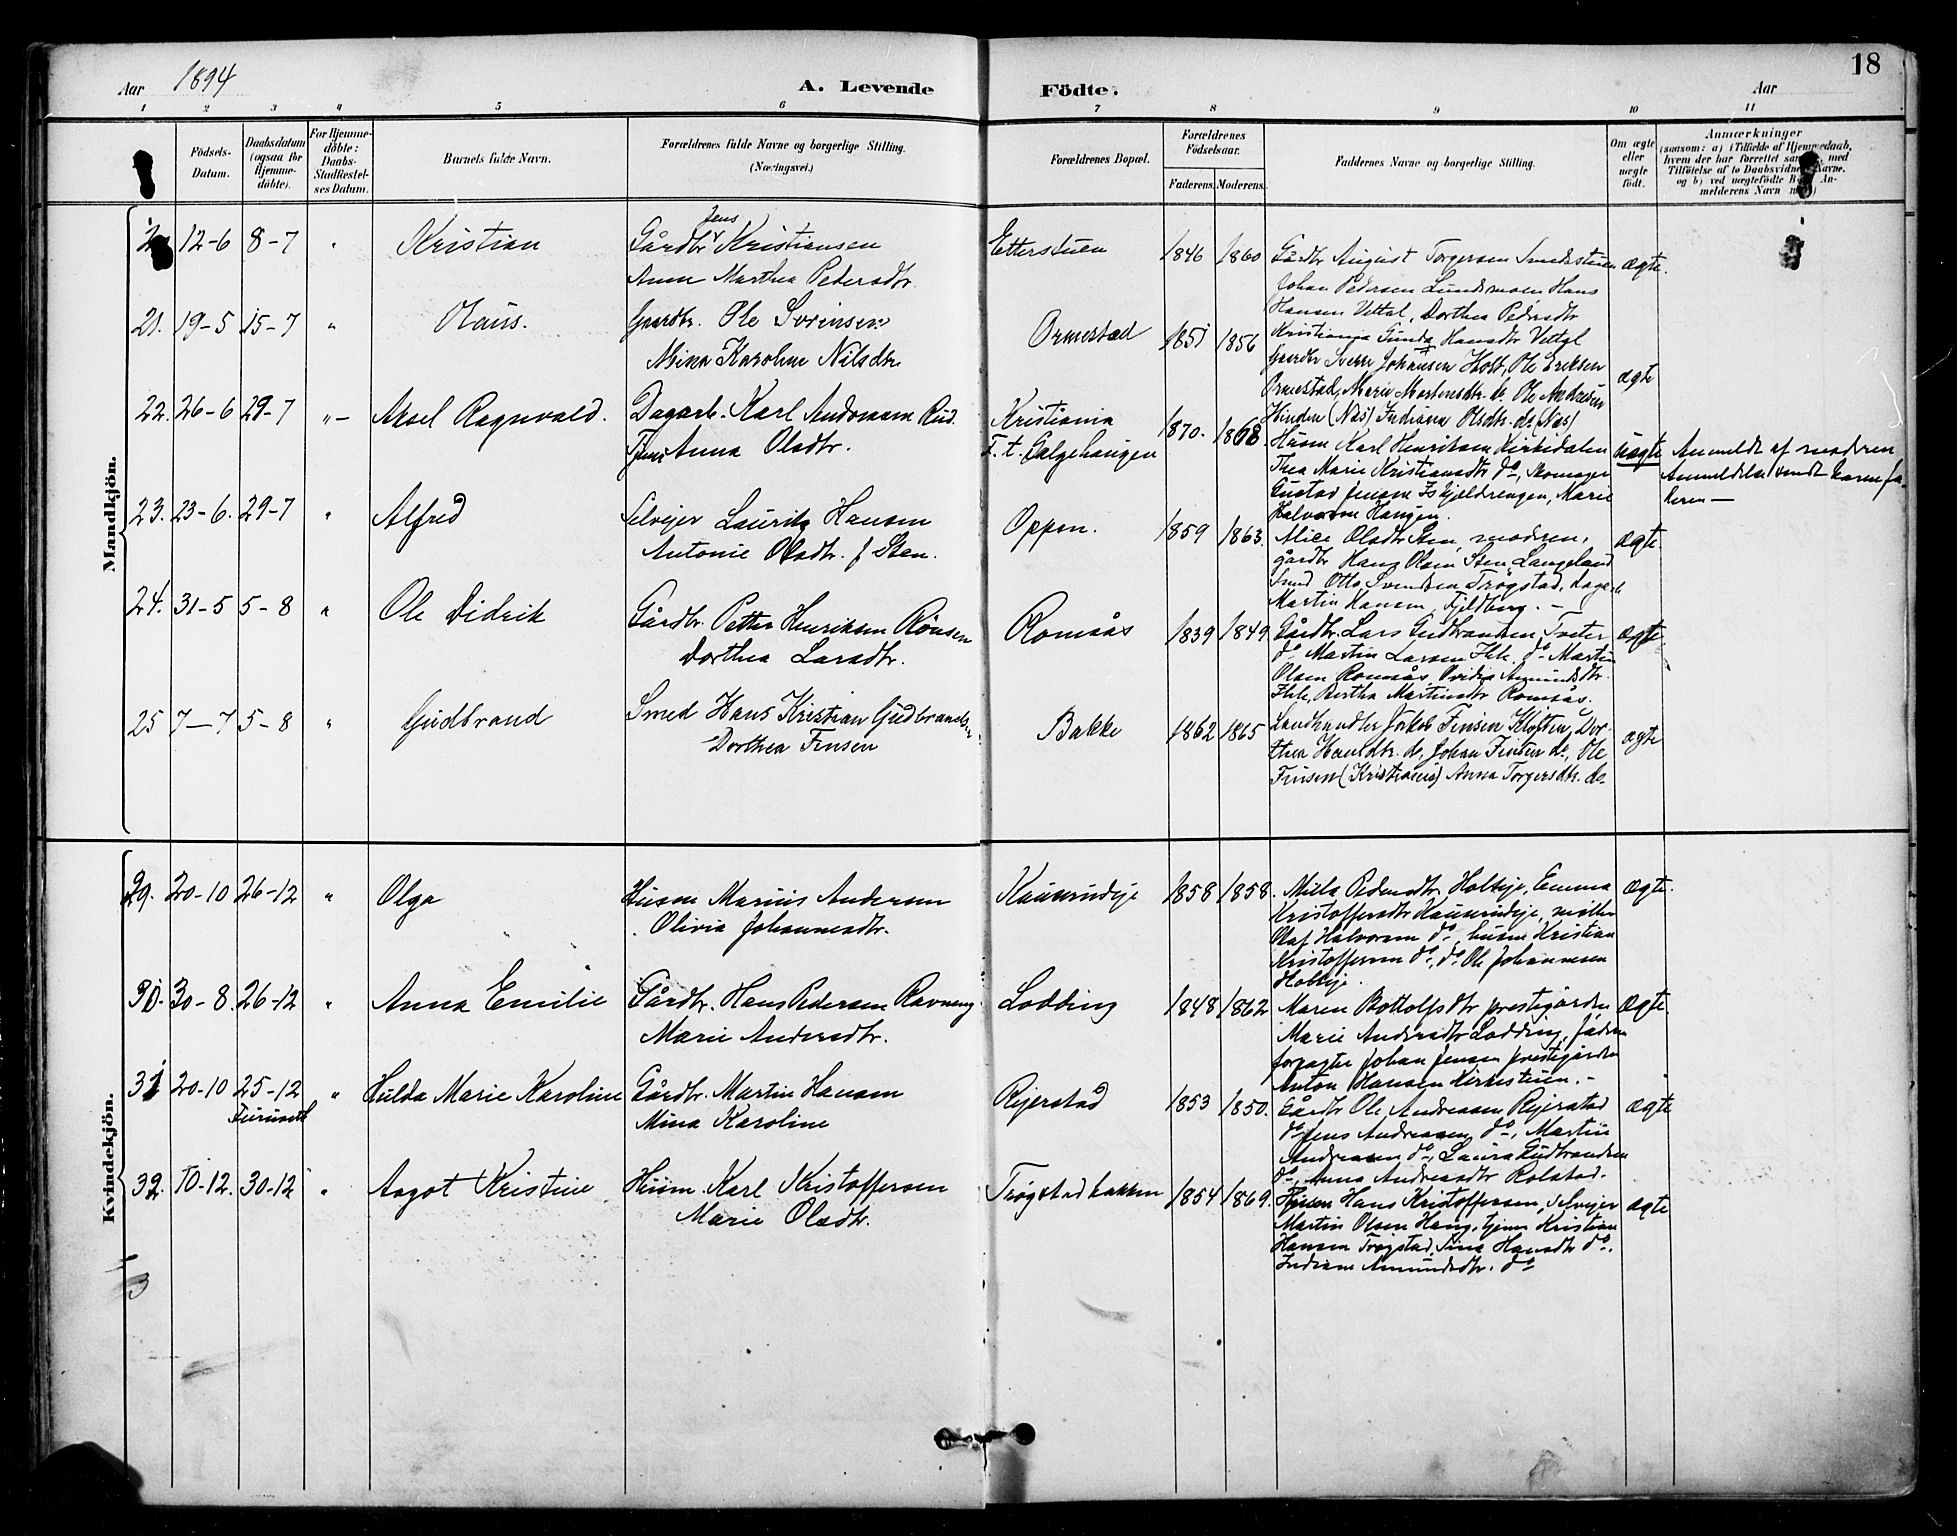 18
Aar 1894 A. Levende Födte. Aar
1 2 3 4 5 6 7 8 9 10 11
Födsels-Datum.
Daabsdatum (ogsaa for Hjemme-döbte).
For Hjemme-döbte: Daabs-Stadfæstel-ses Datum.
Barnets fulde Navn.
Forældrenes fulde Navne og borgerlige Stilling. (Næringsvei.)
Forældrenes Bopæl.
Forældrenes Födselsaar.
Faderens. Moderens.
Faddernes Navne og borgerlige Stilling.
Om ægte eller uægte født.
Anmærkninger
(saasom: a) i Tilfælde af Hjemmedaab,
hvem der har forrettet samme, med
Tilföielse af to Daabsvidners Navne.
og b) ved uægtefödte Børn An-
melderens Navn m.m.)
Mandkjön.
12-6 8-7 " Kristian
Gårdbr. Jens Kristiansen
Anne Marthea Pedersdtr.
Etterstuen 1846 1860
Gårdbr August Torgersen Smedstuen
Johan Pedersen Lundsmoen Hans
Hansen Vettal, Dorthea Pedersdtr
Kristiania Gunda Hansdtr Vettal
ægte.
21. 19-5 15-7 " Olaus.
Gaardbr. Ole Sørensen
Mina Karoline Nilsdtr.
Ormestad 1851 1856
Gaardbr Sverre Johansen Holt, Ole Eriksen
Ormestad, Marie Mortensdtr. do. Ole Andersen
Hinden (Næs) Indiana Olsdtr. do Næs)
ægte
22. 26-6 29-7 "- Aksel Ragnvald.
Dagarb. Karl Andersen Rud.
Tjenes Anna Olsdtr.
Kristiania
F. t. Galgehaugen
1870. 1868
Husm Karl Henriksen Kirkedalen
Thea Marie Kristiansdtr do, Skomager
Gustav Jensen Eskjeldrengen, Marie
Halvorsen Haugen.
uægte
Anmeldt af modren
Anmeldelse sendt barnefa-
deren—
23. 23-6. 29-7 " Alfred
Selvejer Lauritz Hansen
Antonie Olsdtr. f Sten.
Oppen. 1859 1863.
Alice Olsdtr Sten, modren,
gårdbr Hans Olsen Sten, Langeland
Smed Otto Svendsen Trøgstad, dagarb
Martin Hansen, Fjeldberg. -
ægte.
24. 31-5 5-8 " Ole Didrik
Gårdbr. Petter Henriksen Rønsen
Dorthea Larsdtr.
Romsås 1839 1849
Gårdbr. Lars Gudbrandsen Tveter
do Martin Larsen Ihle. do Martin
Olsen Romsås, Ovidia Amundsdtr.
Ihle, Bertha Martinsdtr Romsås.
ægte
25 7-7 5-8 " Gudbrand
Smed Hans Kristian Gudbrandsen
Dorthea Finsen
Bakke 1862 1865
Landhandler Jakob Finsen Kløften, Dor-
thea Hansdtr. do, Johan Finsen do, Ole
Finsen (Kristiania) Anna Torgersdtr. do
ægte
Kvindekjön.
29. 20-10 26-12 " Olga
Husm Marius Andersen
Olivia Johannesdtr.
Kauserudeje 1858 1858.
Milla Pedersdtr. Holteje, Emma
Kristoffersdtr Kauserudeje, møller
Olaf Halvorsen do, husm Kristian
Kristoffersen do, do Ole Johannesen
Holteje.
ægte.
30. 30-8. 26-12 " Anna Emilie
Gårdbr. Hans Pedersen Ravneng
Marie Andersdtr.
Lodding 1848 1862
Maren Botholfsdtr prestegården
Marie Andersdtr Lodding, faderen
forpagter Johan Jensen prestegården
Anton Hansen Kirkestuen. -
ægte.
31 20-10 25-12 " Hulda Marie Karoline
Furuset
Gårdbr. Martin Hansen
Mina Karoline
Rejerstad 1853 1850.
Gårdbr Ole Andreassen Rejerstad
do Jens Andreassen do, Martin
Andreassen do, Laura Gudbrandsen
do, Anna Andreasdtr Rolstad.
ægte
32. 10-12. 30-12 " Aagot Kristine
Husm. Karl Kristoffersen
Marie Olsdtr.
Trøgstadbakken 1854 1869.
Husm Hans Kristoffersen, selvejer
Martin Olsen Haug, tjener Kristian
Hansen Trøgstad, Tina Hansdtr do.
Indiane Amundsdtr. do
ægte